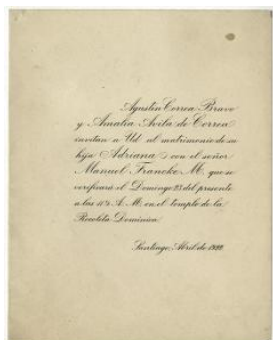 Agustin Correa Bravo
y Amalia Avila de Correa
invitan a Ud al matrimonio de su
hija Adriana con el señor
Manuel Francke M. que se
verificará el Domingo 23 del presente
a las 11½ A. M. en el templo de la
Recoleta Domínica
Santiago, Abril de